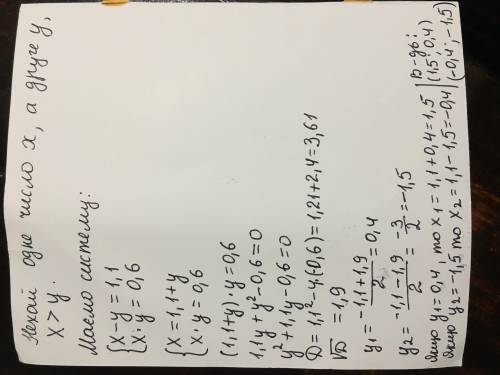 Нехай одне число x, а друге y,
x > y.
Маємо систему:
{x-y=1,1
{x·y=0,6
{x=1,1+y
{x·y=0,6
(1,1+y)·y=0,6
1,1y+y²-0,6=0
y²+1,1y-0,6=0
D=1,1²-4·(-0,6)=1,21+2,4=3,61
√D=1,9
y₁=(-1,1+1,9)/2=0,4
y₂=(-1,1-1,9)/2=-3/2=-1,5
Якщо y₁=0,4, то x₁=1,1+0,4=1,5 | В-дь:
Якщо y₂=-1,5 то x₂=1,1-1,5=-0,4 | (1,5; 0,4)
(-0,4; -1,5)